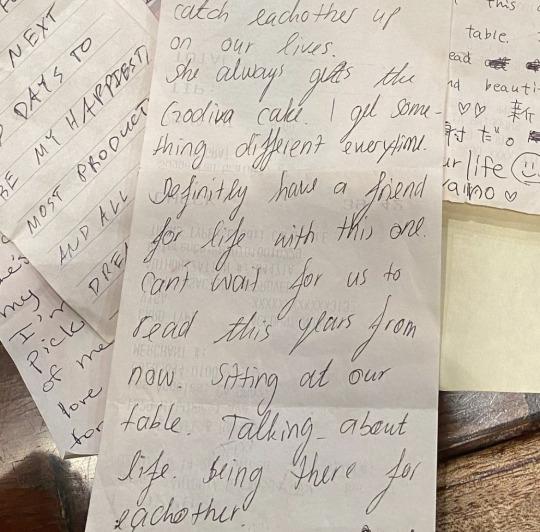 NEXT
DAYS TO
BE MY HAPPIEST,
MOST PRODUCT
AND ALL
DREA
my
I'm
Pick
of me
love
for
catch eachother up
on our lives.
She always gets the
Godiva cake. I get some-
thing different everytime.
Definitly have a friend
for life with this one.
Cant wait for us to
read this years from
now. Sitting at our
table. Talking about
life. being there for
eachother.
this
table.
ead
nd beauti
♡♡ 新
付 だ。
ur life ☺
♡